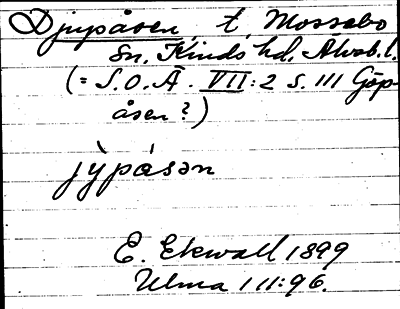 Djupåsen, t. Mossebo
Sn. Kinds hd. Älvsb. l.
(= S.O.Ä. VII:2 s. 111 Göp-
åsen?)
jỳpásən
E. Ekwall 1899
Ulma 111:96.